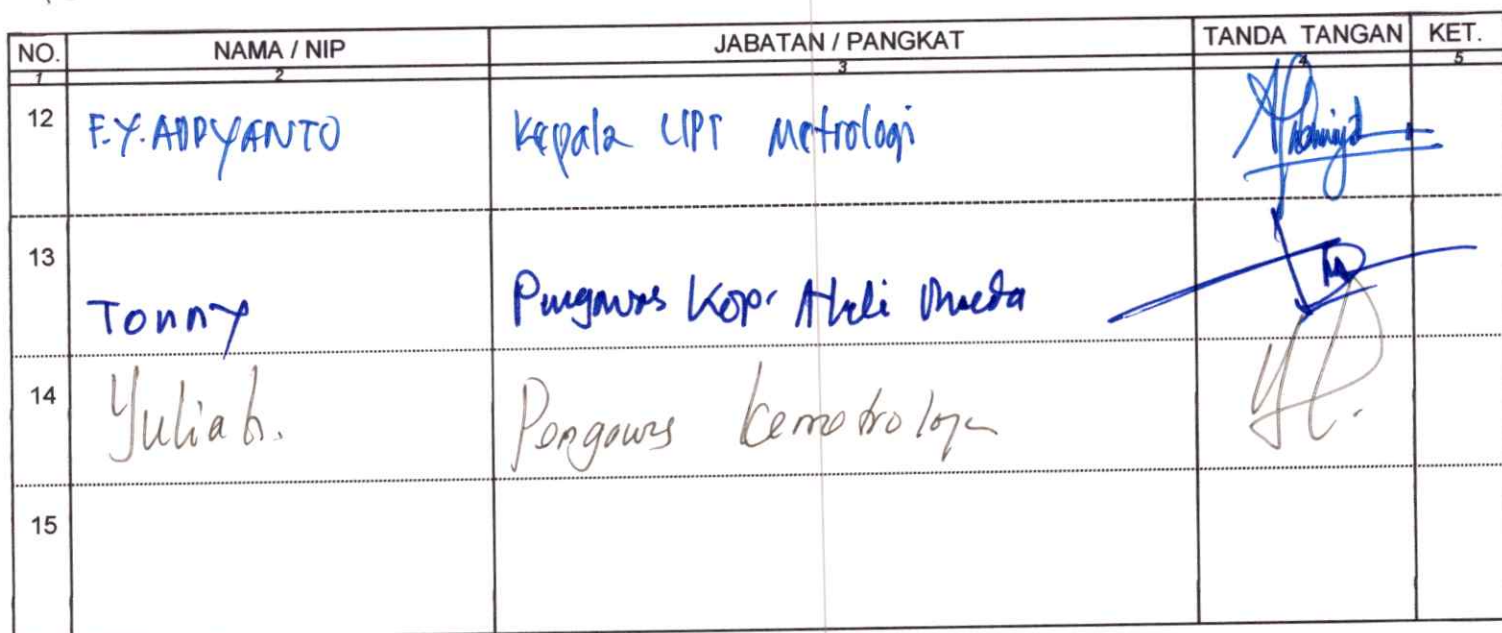 NO. NAMA / NIP JABATAN / PANGKAT TANDA TANGAN KET.
1 2 3 4 5
12 F.Y. ADRYANTO Kepala UPT Metrologi
13
Tonny Pengawas Kop. Ahli
14 Yulia h. Pengawas kemetrologn
15